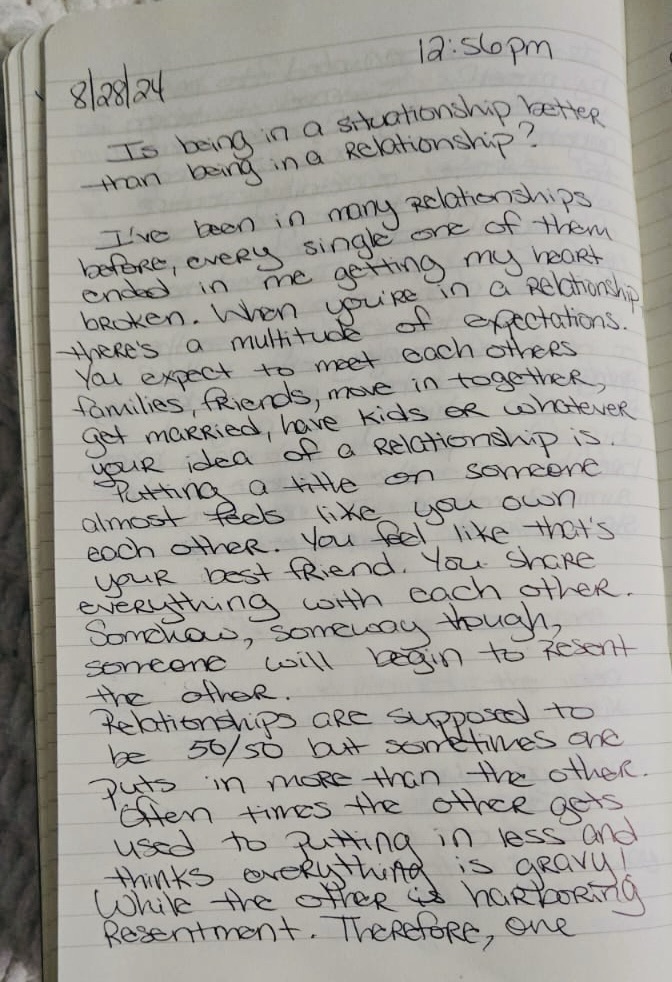 12:56pm
8/28/24
Is being in a situationship better
than being in a Relationship?
I've been in many Relationships
before, every single one of them
ended in me getting my heart
broken. When you're in a Relationship
there's a multitude of expectations.
You expect to meet each others
families, friends, move in together,
get married, have kids or whatever
your idea of a Relationship is.
Putting a title on someone
almost feels like you own
each other. You feel like that's
your best friend. You share
everything with each other.
Somehow, someway though,
someone will begin to resent
the other.
Relationships are supposed to
be 50/50 but sometimes one
puts in more than the other.
Often times the other gets
used to putting in less and
thinks everything is gravy!
While the other is harboring
Resentment. Therefore, one